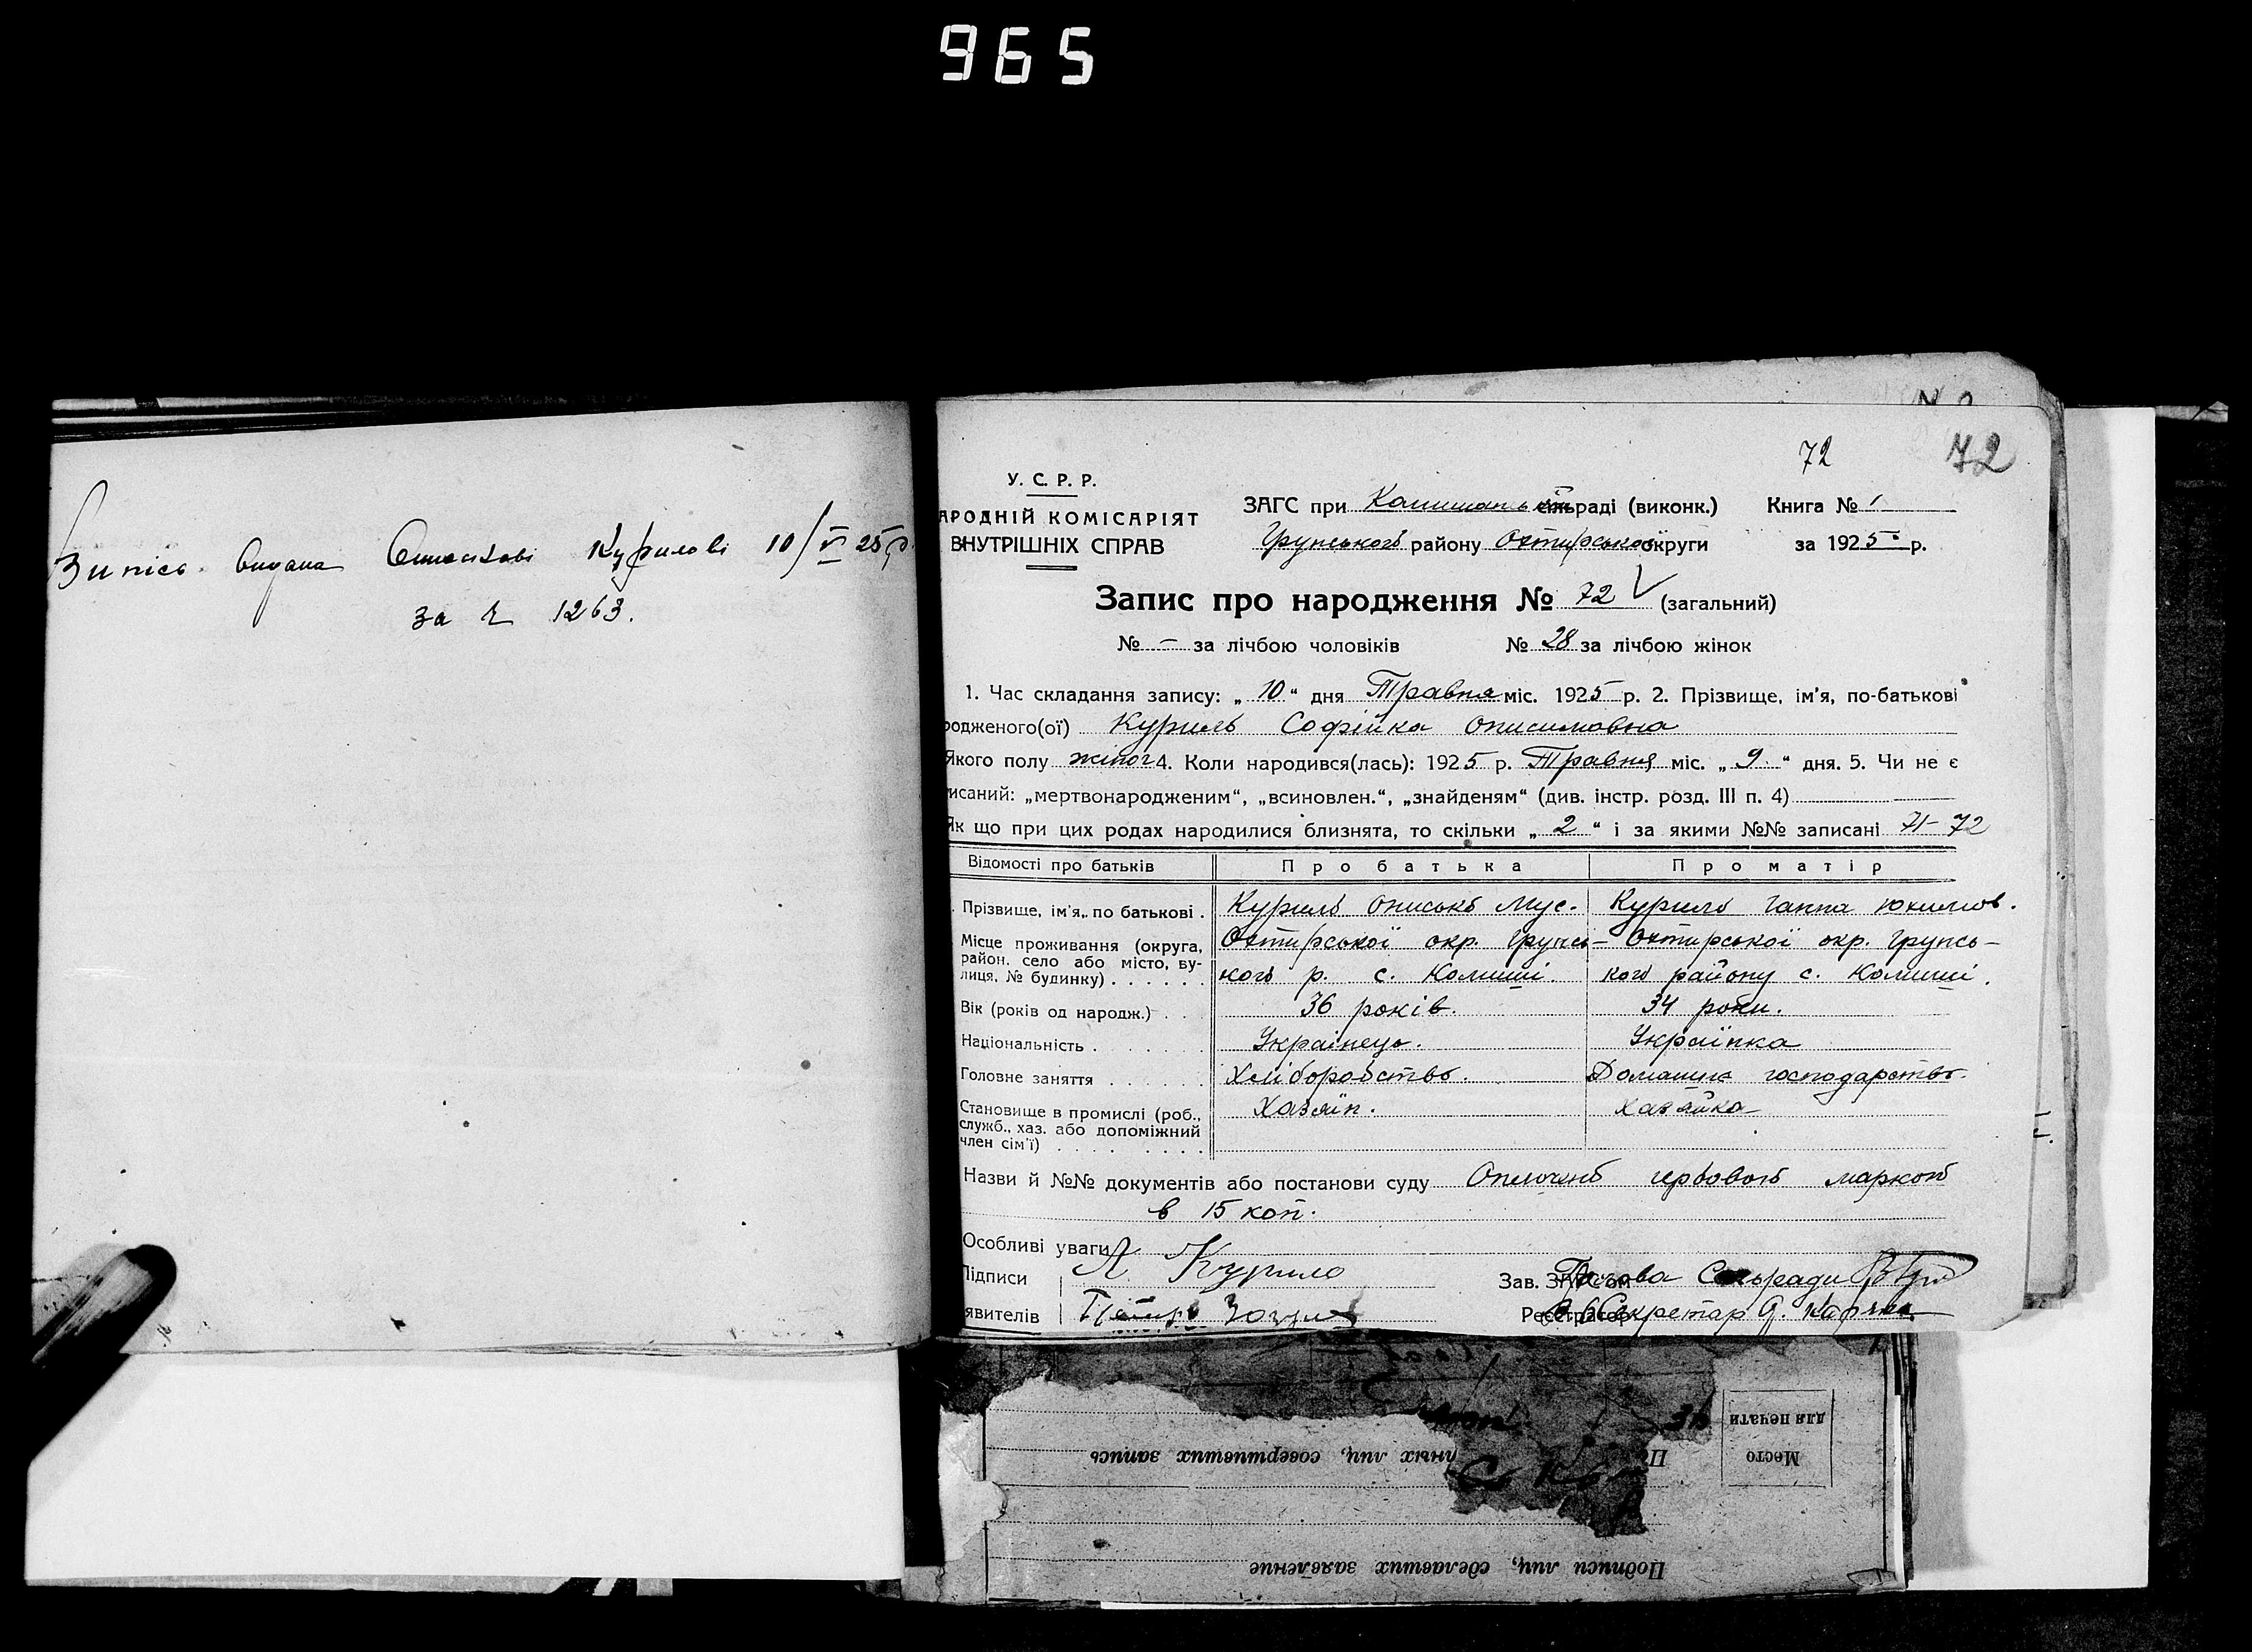 965
Випісь видана Описькові Курилові 10/V 25 р.
за № 1263.
72
72
У. С. Р. Р.
АРОДНІЙ КОМІСАРІЯТ
ВНУТРІШНІХ СПРАВ
ЗАГС при сільраді (виконк.) Книга № 1
Грунського району Охтирської округи за 1925 р.
Запис про народження № 72 V (загальний)
№ – за лічбою чоловіків № 28 за лічбою жінок
1. Час складання запису: „ 10 “ дня Травня міс. 1925 р. 2. Прізвище, ім'я, по-батькові
родженого(ої) Курилō Софійка Онисимовна
Якого полу жіног 4. Коли народився(лась): 1925 р. Травня міс. „ 9 “ дня. 5. Чи не є
писаний: „мертвонародженим“, „всиновлен.“, „знайденям“ (див. інстр. розд. III п. 4)
Як що при цих родах народилися близнята, то скільки „ 2 “ і за якими №№ записані 71–72
Відомості про батьків Про батька Про матір
Прізвище, ім'я, по батькові . Курило Онисько Мус. Курило Ганна Юхимов.
Місце проживання (округа, район, село або місто, вулиця, № будинку) . . . . . .
Охтирської окр. Грунсь– Охтирської окр. Грунсь–
кого р. с. Комиші. кого району с. Комиші.
Вік (років од народж.) . . . 36 років. 34 роки.
Національність . . . . . . . Українець. Українка
Головне заняття . . . . . . Хліборобство. Домашнє господарство.
Становище в промислі (роб., служб., хаз. або допоміжний член сім'ї) . . . . . . . . Хазяїн. Хазяйка
Назви й №№ документів або постанови суду Оплочено гербовою маркою
в 15 коп.
Особливі уваги
Підписи Курило Зав. ЗАГСом Голова Сільради
явителів Петро Реєстратор Секретар
Место
для печати
лиц, совершивших запись
Подписи лиц, сделавших заявление